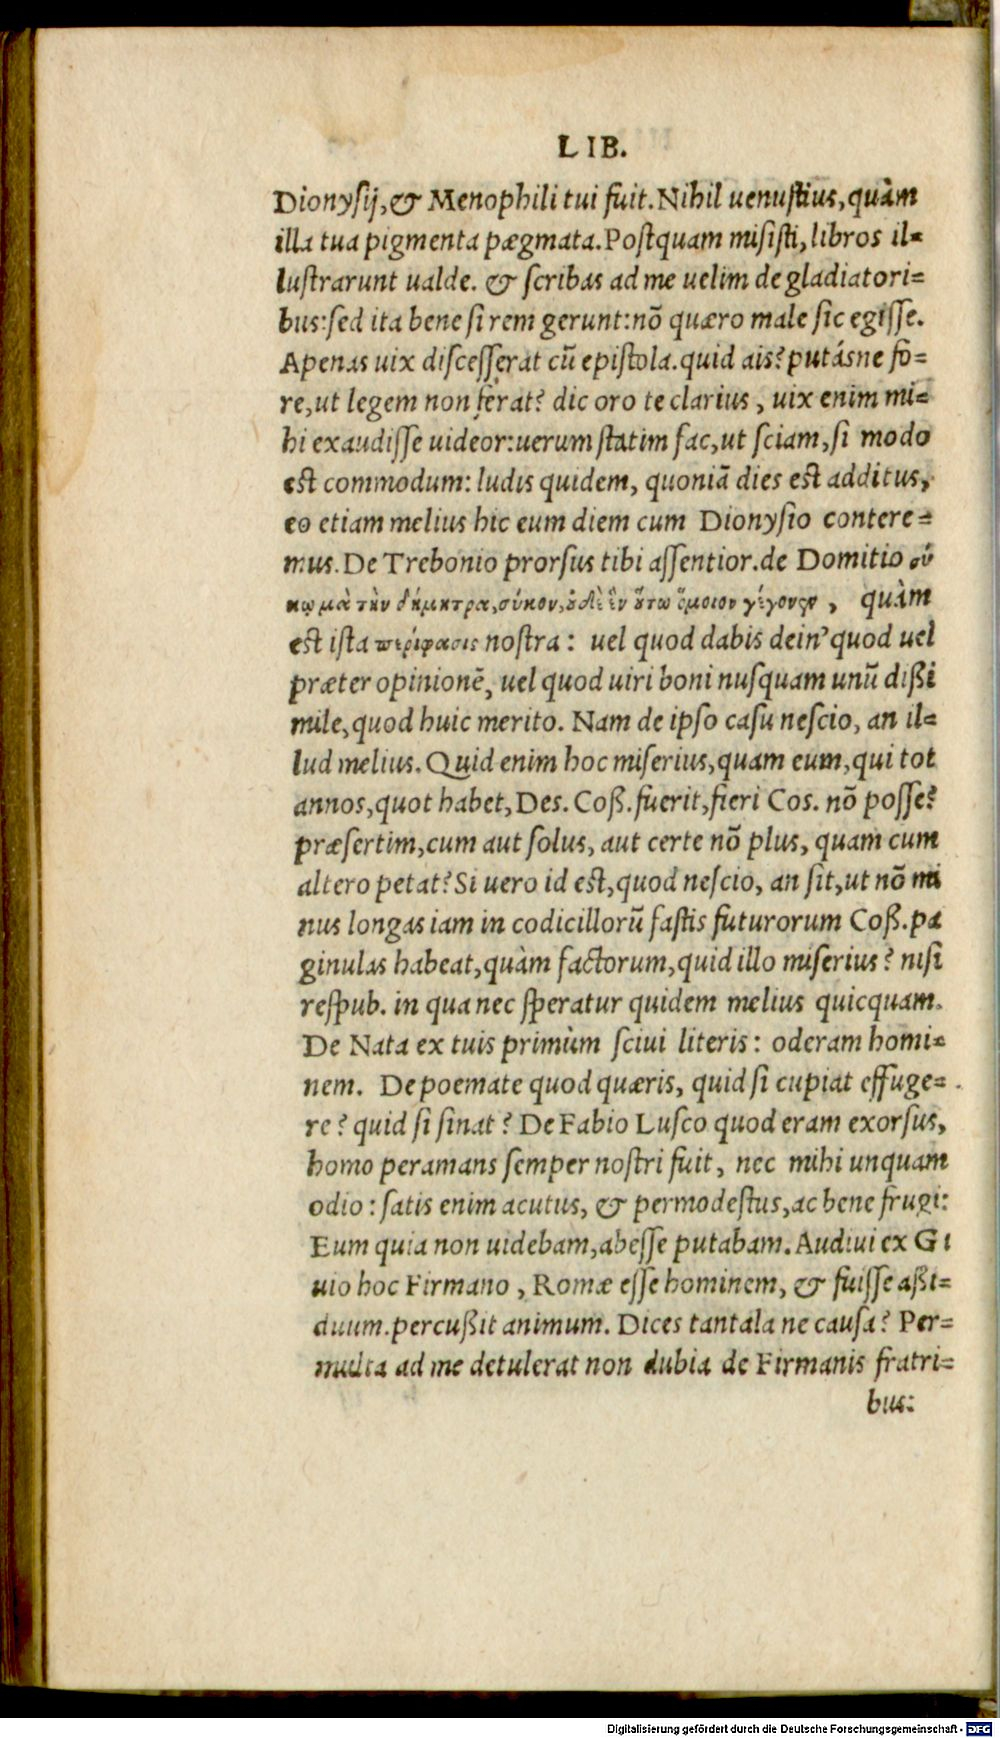 LIB.
Dionysij, & Menophili tui fuit. Nihil uenustius, quàm
illa tua pigmenta pægmata. Postquam misisti, libros il=
lustrarunt ualde. & scribas ad me uelim de gladiatori=
bus: sed ita bene si rem gerunt: nõ quæro male sic egisse.
Apenas uix discesserat cũ epistola. quid ais? putásne fo=
re, ut legem non ferat? dic oro te clarius, uix enim mi=
hi exaudisse uideor: uerum statim fac, ut sciam, si modo
est commodum: ludis quidem, quoniã dies est additus,
eo etiam melius hic eum diem cum Dionysio contere=
mus. De Trebonio prorsus tibi assentior. de Domitio οὐ
κωμὰ τὴν δήμητρα, σύκον, ὀδὲ ἓν ὅτω ὅμοιον γέγονεν, quàm
est ista περίφασις nostra: uel quod dabis dein' quod uel
præter opinionẽ, uel quod uiri boni nusquam unũ dißi
mile, quod huic merito. Nam de ipso casu nescio, an il=
lud melius. Quid enim hoc miserius, quam eum, qui tot
annos, quot habet, Des. Coß. fuerit, fieri Cos. nõ posse?
præsertim, cum aut solus, aut certe nõ plus, quam cum
altero petat? Si uero id est, quod nescio, an sit, ut nõ mi
nus longas iam in codicillorũ fastis futurorum Coß. pa
ginulas habeat, quàm factorum, quid illo miserius? nisi
respub. in qua nec speratur quidem melius quicquam.
De Nata ex tuis primùm sciui literis: oderam homi=
nem. De poemate quod quæris, quid si cupiat effuge=
re? quid si sinat? De Fabio Lusco quod eram exorsus,
homo peramans semper nostri fuit, nec mihi unquam
odio: satis enim acutus, & permodestus, ac bene frugi:
Eum quia non uidebam, abesse putabam. Audiui ex Gi
uio hoc Firmano, Romæ esse hominem, & fuisse aßi=
duum. percußit animum. Dices tantala ne causa? Per=
multa ad me detulerat non dubia de Firmanis fratri=
bus:
Digitalisierung gefördert durch die Deutsche Forschungsgemeinschaft - DFG